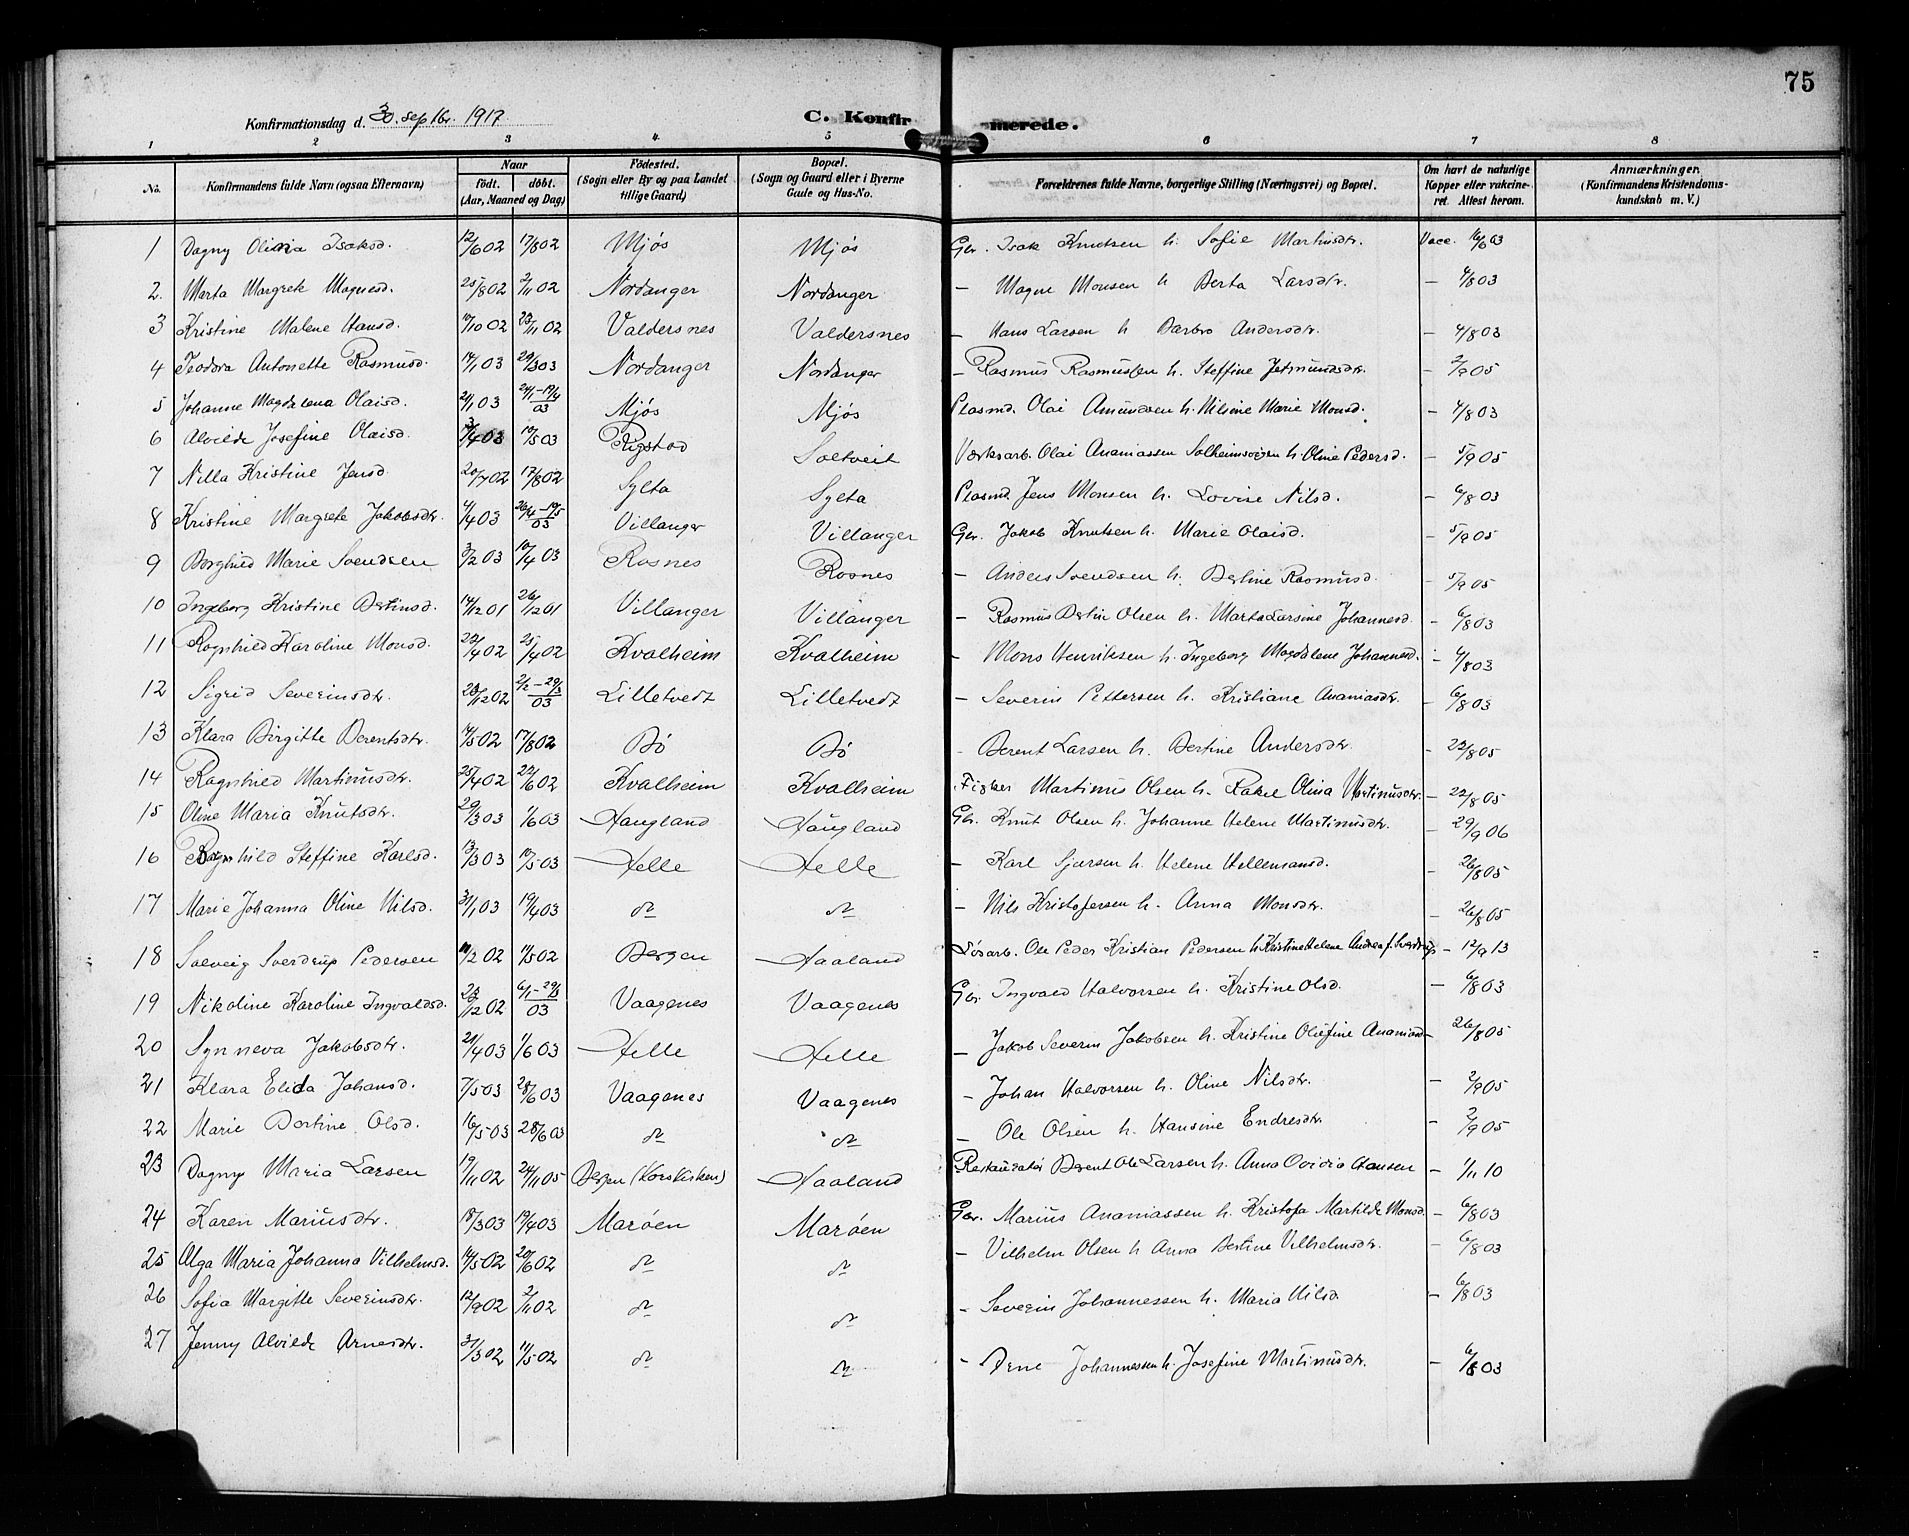 75
Konfirmationsdag d. 30. septbr. 1917. C. Konfirmerede.
1 2 3 4. 5 6 7 8
No. Konfirmandens fulde Navn (ogsaa Efternavn) Naar födt. döbt. (Aar, Maaned og Dag) Födested. (Sogn eller By og paa Landet tillige Gaard) Bopæl. (Sogn og Gaard eller i Byerne Gade og Hus-No. Forældrenes fulde Navne, borgerlige Stilling (Næringsvei) og Bopæl. Om havt de naturlige Kopper eller vakcineret. Attest herom. Anmærkninger. (Konfirmandens Kristendomskundskab m. V.)
1 Dagny Olina Isaksd. 12/6 02 17/8 02 Mjøs Mjøs Gbr. Isak Knutsen h. Sofie Martinsdtr. Vacc. 16/6 03
2. Marta Margrete Magnesd. 25/8 02 2/11 02 Nordanger Nordanger — Magne Monsen h Berta Larsdtr. — 4/8 03
3 Kristine Malene Hansd. 17/10 02 23/11 02 Valdersnes Valdersnes — Hans Larsen h Barbro Andersdtr. — 4/8 03
4 Teodora Antonette Rasmusd. 14/1 03 29/3 03 Nordanger Nordanger — Rasmus Rasmussen h. Steffine Jetmundsdtr. — 2/9 05
5 Johanne Magdalena Olaisd. 21/1 03 24/1–19/4 03 Mjøs Mjøs Plasmd. Olai Amundsen h. Nilsine Marie Monsd. — 4/8 03
6 Alvilde Josefine Olaisd. /4 03 10/5 03 Rigstad Saltveit Værksarb. Olai Ananiassen h. Oline Pedersd. — 5/9 05
7 Nilla Kristine Jensd. 20/7 02 17/8 02 Sylta Sylta Plasmd. Jens Monsen h. Lovise Nilsd. — 6/8 03
8 Kristine Margrete Jakobsdtr. 4/4 03 26/4–10/5 03 Villanger Villanger Gbr. Jakob Knutsen h. Marie Olaisd. — 5/9 05
9 Borghild Marie Svendsen 3/2 03 10/4 03 Rosnes Rosnes — Anders Svendsen h. Bertine Rasmusd. — 5/9 05
10 Ingeborg Kristine Bertinsd. 14/12 01 26/12 01 Villanger Villanger — Rasmus Bertin Olsen h. Marta Larsine Johannesd. — 6/8 03
11 Ragnhild Karoline Monsd. 22/4 02 25/4 02 Kvalheim Kvalheim — Mons Henriksen h. Ingeborg Magdalene Johannesd. — 4/8 03
12 Sigrid Severinsdtr. 23/12 02 2/2–29/3 03 Lilletvedt Lilletvedt — Severin Pettersen h. Kristiane Ananiasdtr. — 6/8 03
13 Klara Birgitte Berentsdtr. 14/5 02 17/8 02 Bö Bö — Berent Larsen h. Bertine Andersdtr. — 22/8 05
14 Ragnhild Martinusdtr. 25/4 02 22/6 02 Kvalheim Kvalheim Fisker Martinus Olsen h. Rakel Olina Martinusdtr. — 22/8 05
15 Oline Maria Knutsdtr. 29/3 03 1/6 03 Haugland Haugland Gbr. Knut Olsen h. Johanne Helene Martinusdtr. — 29/9 06
16 Ragnhild Steffine Karlsd. 13/3 03 10/5 03 Helle Helle — Karl Sjursen h. Helene Hellemansd. — 26/8 05
17 Marie Johanna Oline Nilsd. 31/1 03 19/4 03 do do — Nils Kristofersen h. Anna Monsdtr. — 26/8 05
18 Solveig Sverdrup Pedersen 11/2 02 11/5 02 Bergen Haaland Løsarb. Ole Peder Kristian Pedersen h. Kristine Helene Andrea f. Sverdrup — 12/9 13
19 Nikoline Karoline Ingvaldsd. 23/12 02 6/1–29/3 03 Vaagenes Vaagenes Gbr. Ingvald Halvorsen h. Kristine Olsd. — 6/8 03
20 Synneva Jakobsdtr. 21/4 03 1/6 03 Helle Helle — Jakob Severin Jakobsen h. Kristine Olefine Ananiasd — 26/8 05
21 Klara Elida Johansd. 7/5 03 28/6 03 Vaagenes Vaagenes — Johan Halvorsen h. Oline Nilsdtr. — 2/9 05
22 Marie Bertine Olsd. 16/5 03 28/6 03 do do — Ole Olsen h. Hansine Endresdtr. — 2/9 05
23 Dagny Maria Larsen 19/11 02 24/11 05 Bergen (Korskirken) Haaland Restauratør Berent Ole Larsen h. Anna Ovidia Hansen — 1/11 10
24 Karen Mariusdtr. 18/3 03 19/4 03 Marøen Marøen Gbr. Marius Ananiassen h. Kristofa Martilde Monsd. — 6/8 03
25 Alga Maria Johanna Vilhelmsd. 14/5 02 20/6 02 do do — Vilhelm Olsen h Anna Bertine Vilhelmsdtr. — 6/8 03
26 Sofia Margitte Severinsdtr. 12/9 02 2/11 02 do do — Severin Johannessen h. Maria Nilsd — 6/8 03
27 Jenny Alvilde Arnesdtr. 31/3 02 11/5 02 do do — Arne Johannessen h. Josefine Martinusdtr. — 6/8 03